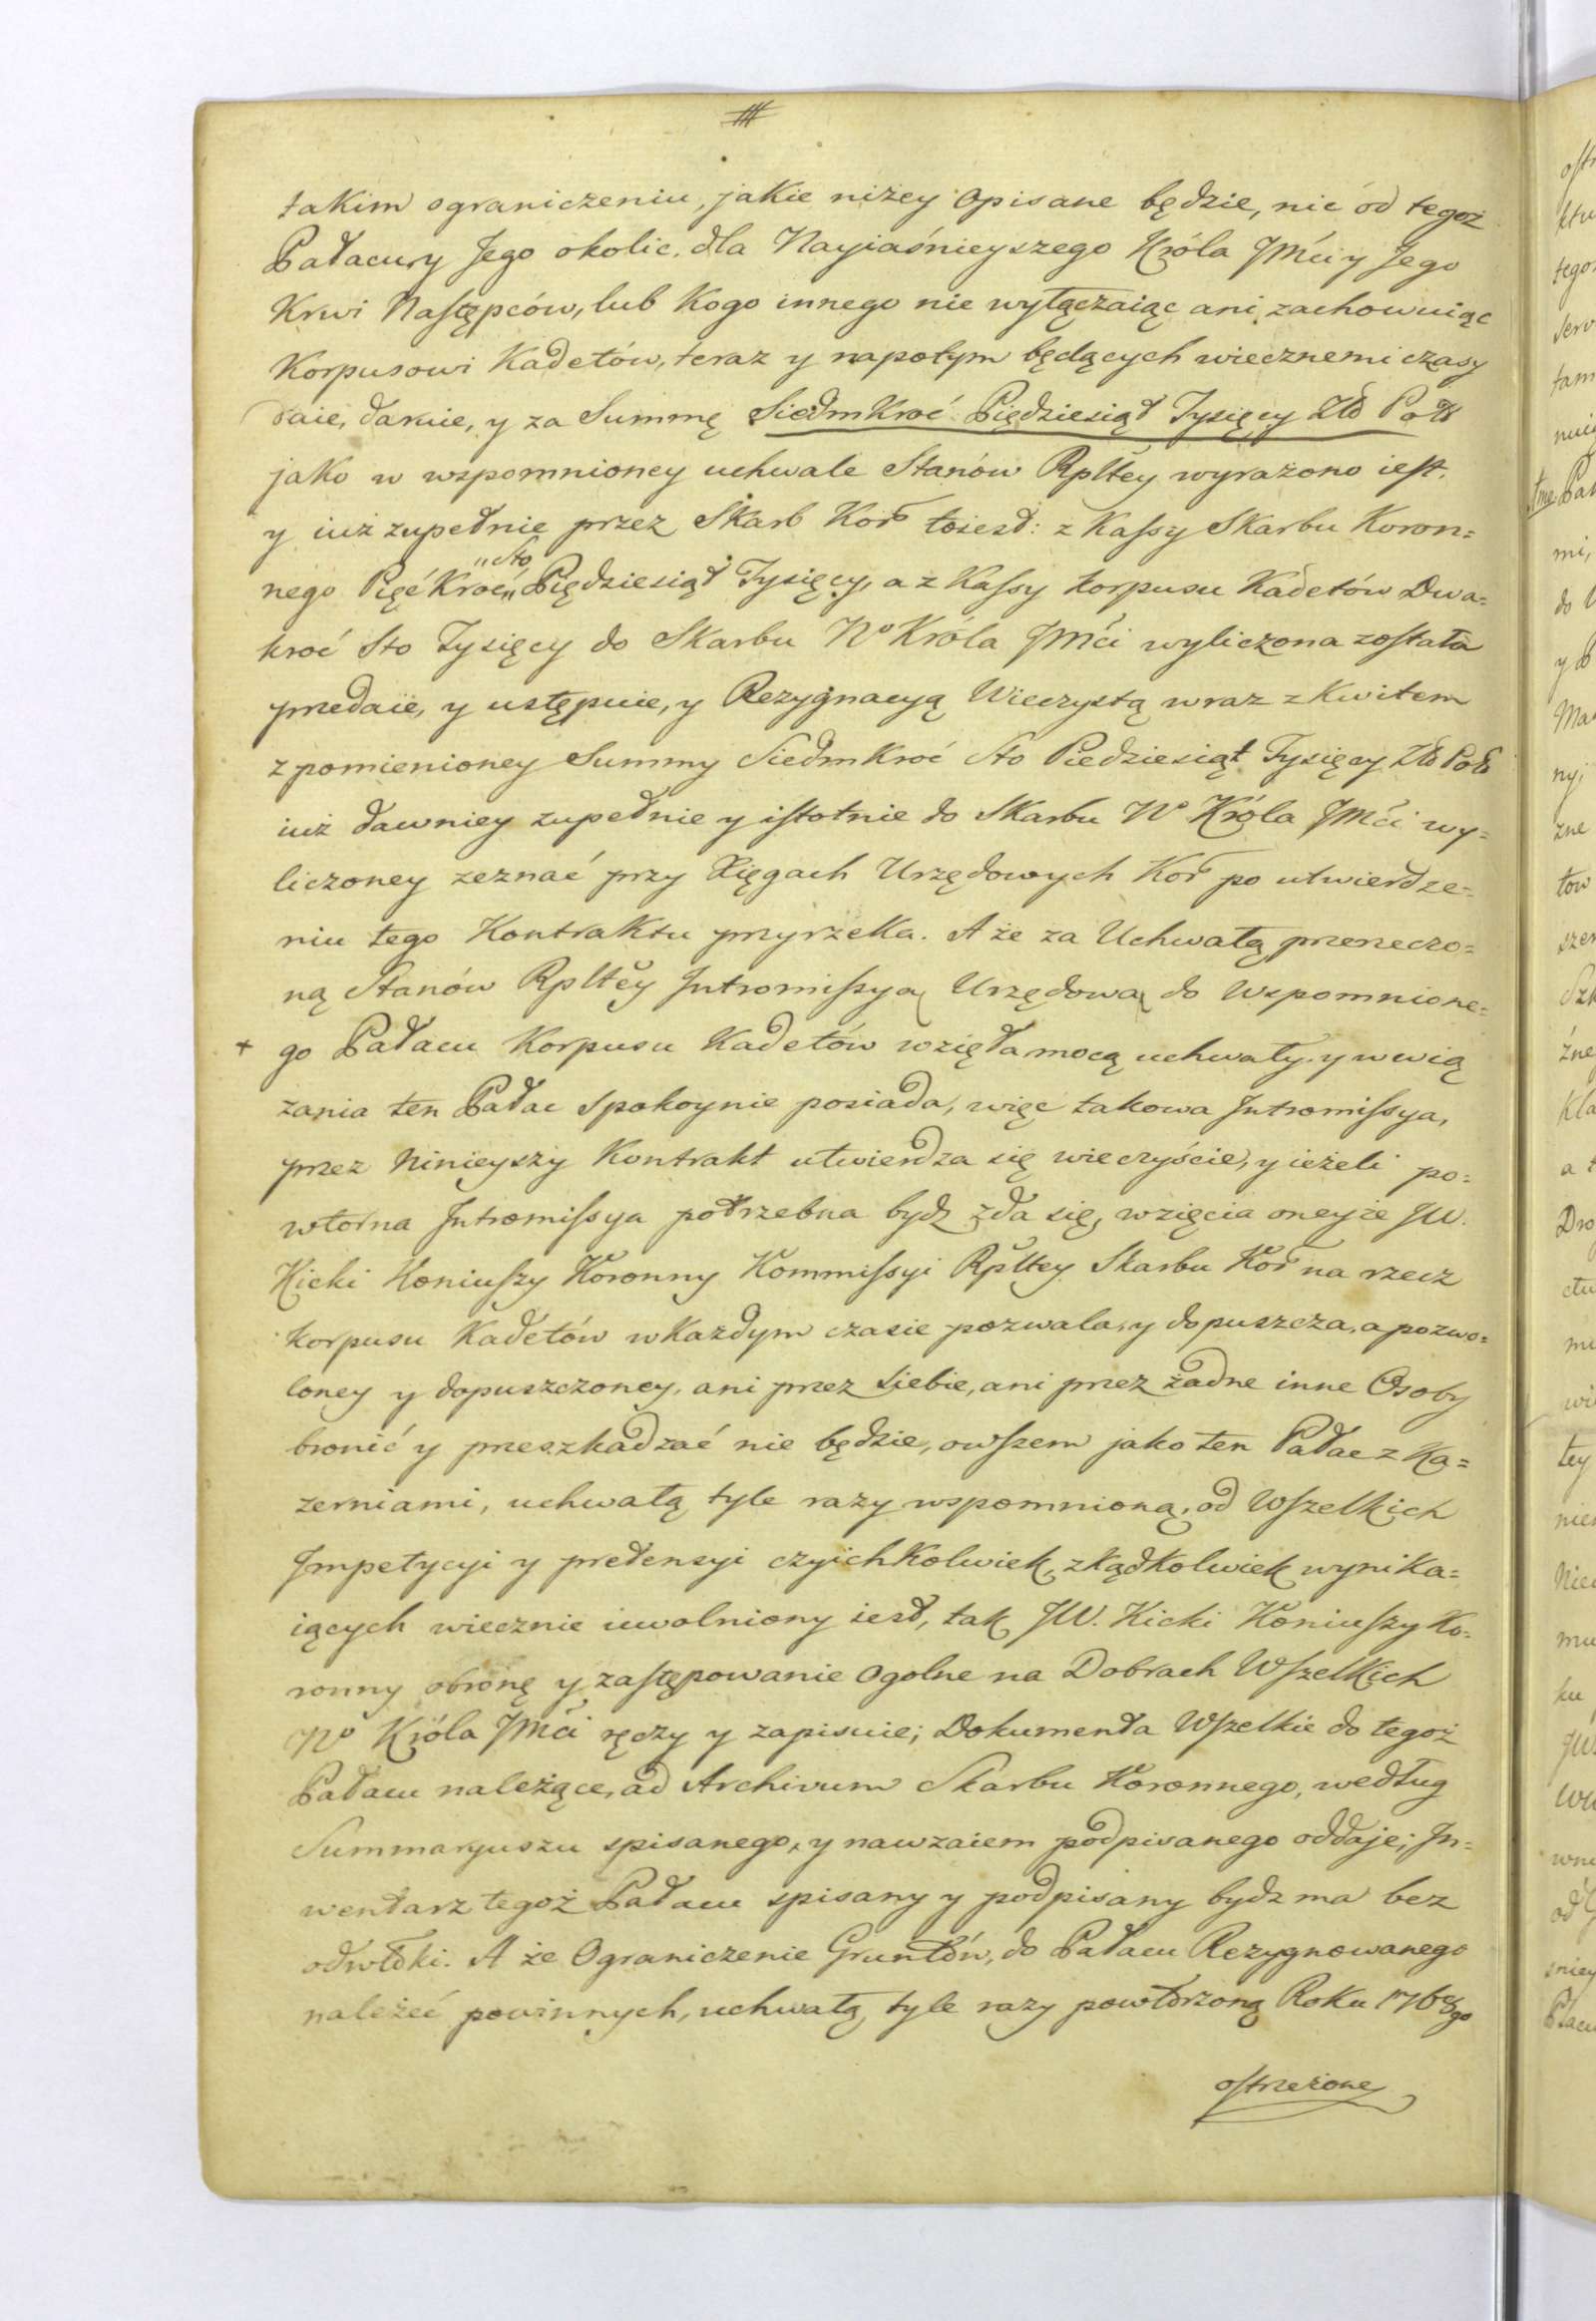 takim ograniczeniu, jakie niżey opisane będzie, nic od tegoż
Pałacu, y Jego okolic, dla Nayiaśnieyszego Króla JMći y Jego
Krwi Następców, lub Kogo innego nie wyłączaiąc ani zachowuiąc
Korpusowi Kadetów, teraz y napotym będących wiecznemi czasy
daie, daruie, y za Summę Siedmkroć Piędziesiąt Tysięcy Zło Pol
jako w wspomnioney uchwale Stanów Rpltey wyrażono iest,
y iuż zupełnie przez Skarb Kor̃ toiest: z Kassy Skarbu Koron=
nego Pięć Kroć „Sto„ Piędziesiąt Tysięcy, a z Kassy Korpusu Kadetów Dwa=
kroć Sto Tysięcy do Skarbu No Króla JMći wyliczona została
przedaie, y ustępuie, y Rezygnacyą Wieczystą wraz z Kwitem
z pomienioney Summy Siedmkroć Sto Piedziesiąt Tysięcy Zło Pol
iuż dawniey zupełnie y istotnie do Skarbu No Króla JMći wy=
liczoney zeznać przy Xięgach Urzędowych Kor̃ po utwierdze=
niu tego Kontraktu przyrzeka. A że za Uchwałą przerzeczo=
ną Stanów Rpltey Intromissyą Urzędową do Wspomnione=
+ go Pałacu Korpusu Kadetów wzięta mocą uchwały y wwią
zania ten Pałac spokoynie posiada, więc takowa Intromissya,
przez Ninieyszy Kontrakt utwierdza się wieczyście, y ieżeli po=
wtorna Intromissya potrzebna bydz zda się, wzięcia oneyże JW.
Kicki Koniuszy Koronny Kommissyi Rpltey Skarbu Kor̃ na rzecz
Korpusu Kadetów w Każdym czasie pozwala, y dopuszcza, a pozwo=
loney y dopuszczoney, ani przez siebie, ani przez żadne inne Osoby
bronić y przeszkadzać nie będzie, owszem jako ten Pałac z Ka=
zerniami, uchwałą tyle razy wspomnioną, od Wszelkich
Impetycyi y pretensyi czyichkolwiek, zkądkolwiek wynika=
iących wiecznie uwolniony iest, tak JW. Kicki Koniuszy Ko=
ronny obronę y zastępowanie ogolne na Dobrach Wszelkich
No Króla JMći ręczy y zapisuie; Dokumenta Wszelkie do tegoż
Pałacu należące, ad Archivum Skarbu Koronnego, według
Summaryuszu spisanego, y nawzaiem podpisanego oddaje; In=
wentarz tegoż Pałacu spisany y podpisany bydz ma bez
odwłoki. A że Ograniczenie Gruntów, do Pałacu Rezygnowanego
należeć powinnych, uchwałą, tyle razy powtórzoną Roku 1768go
ostrzeżone